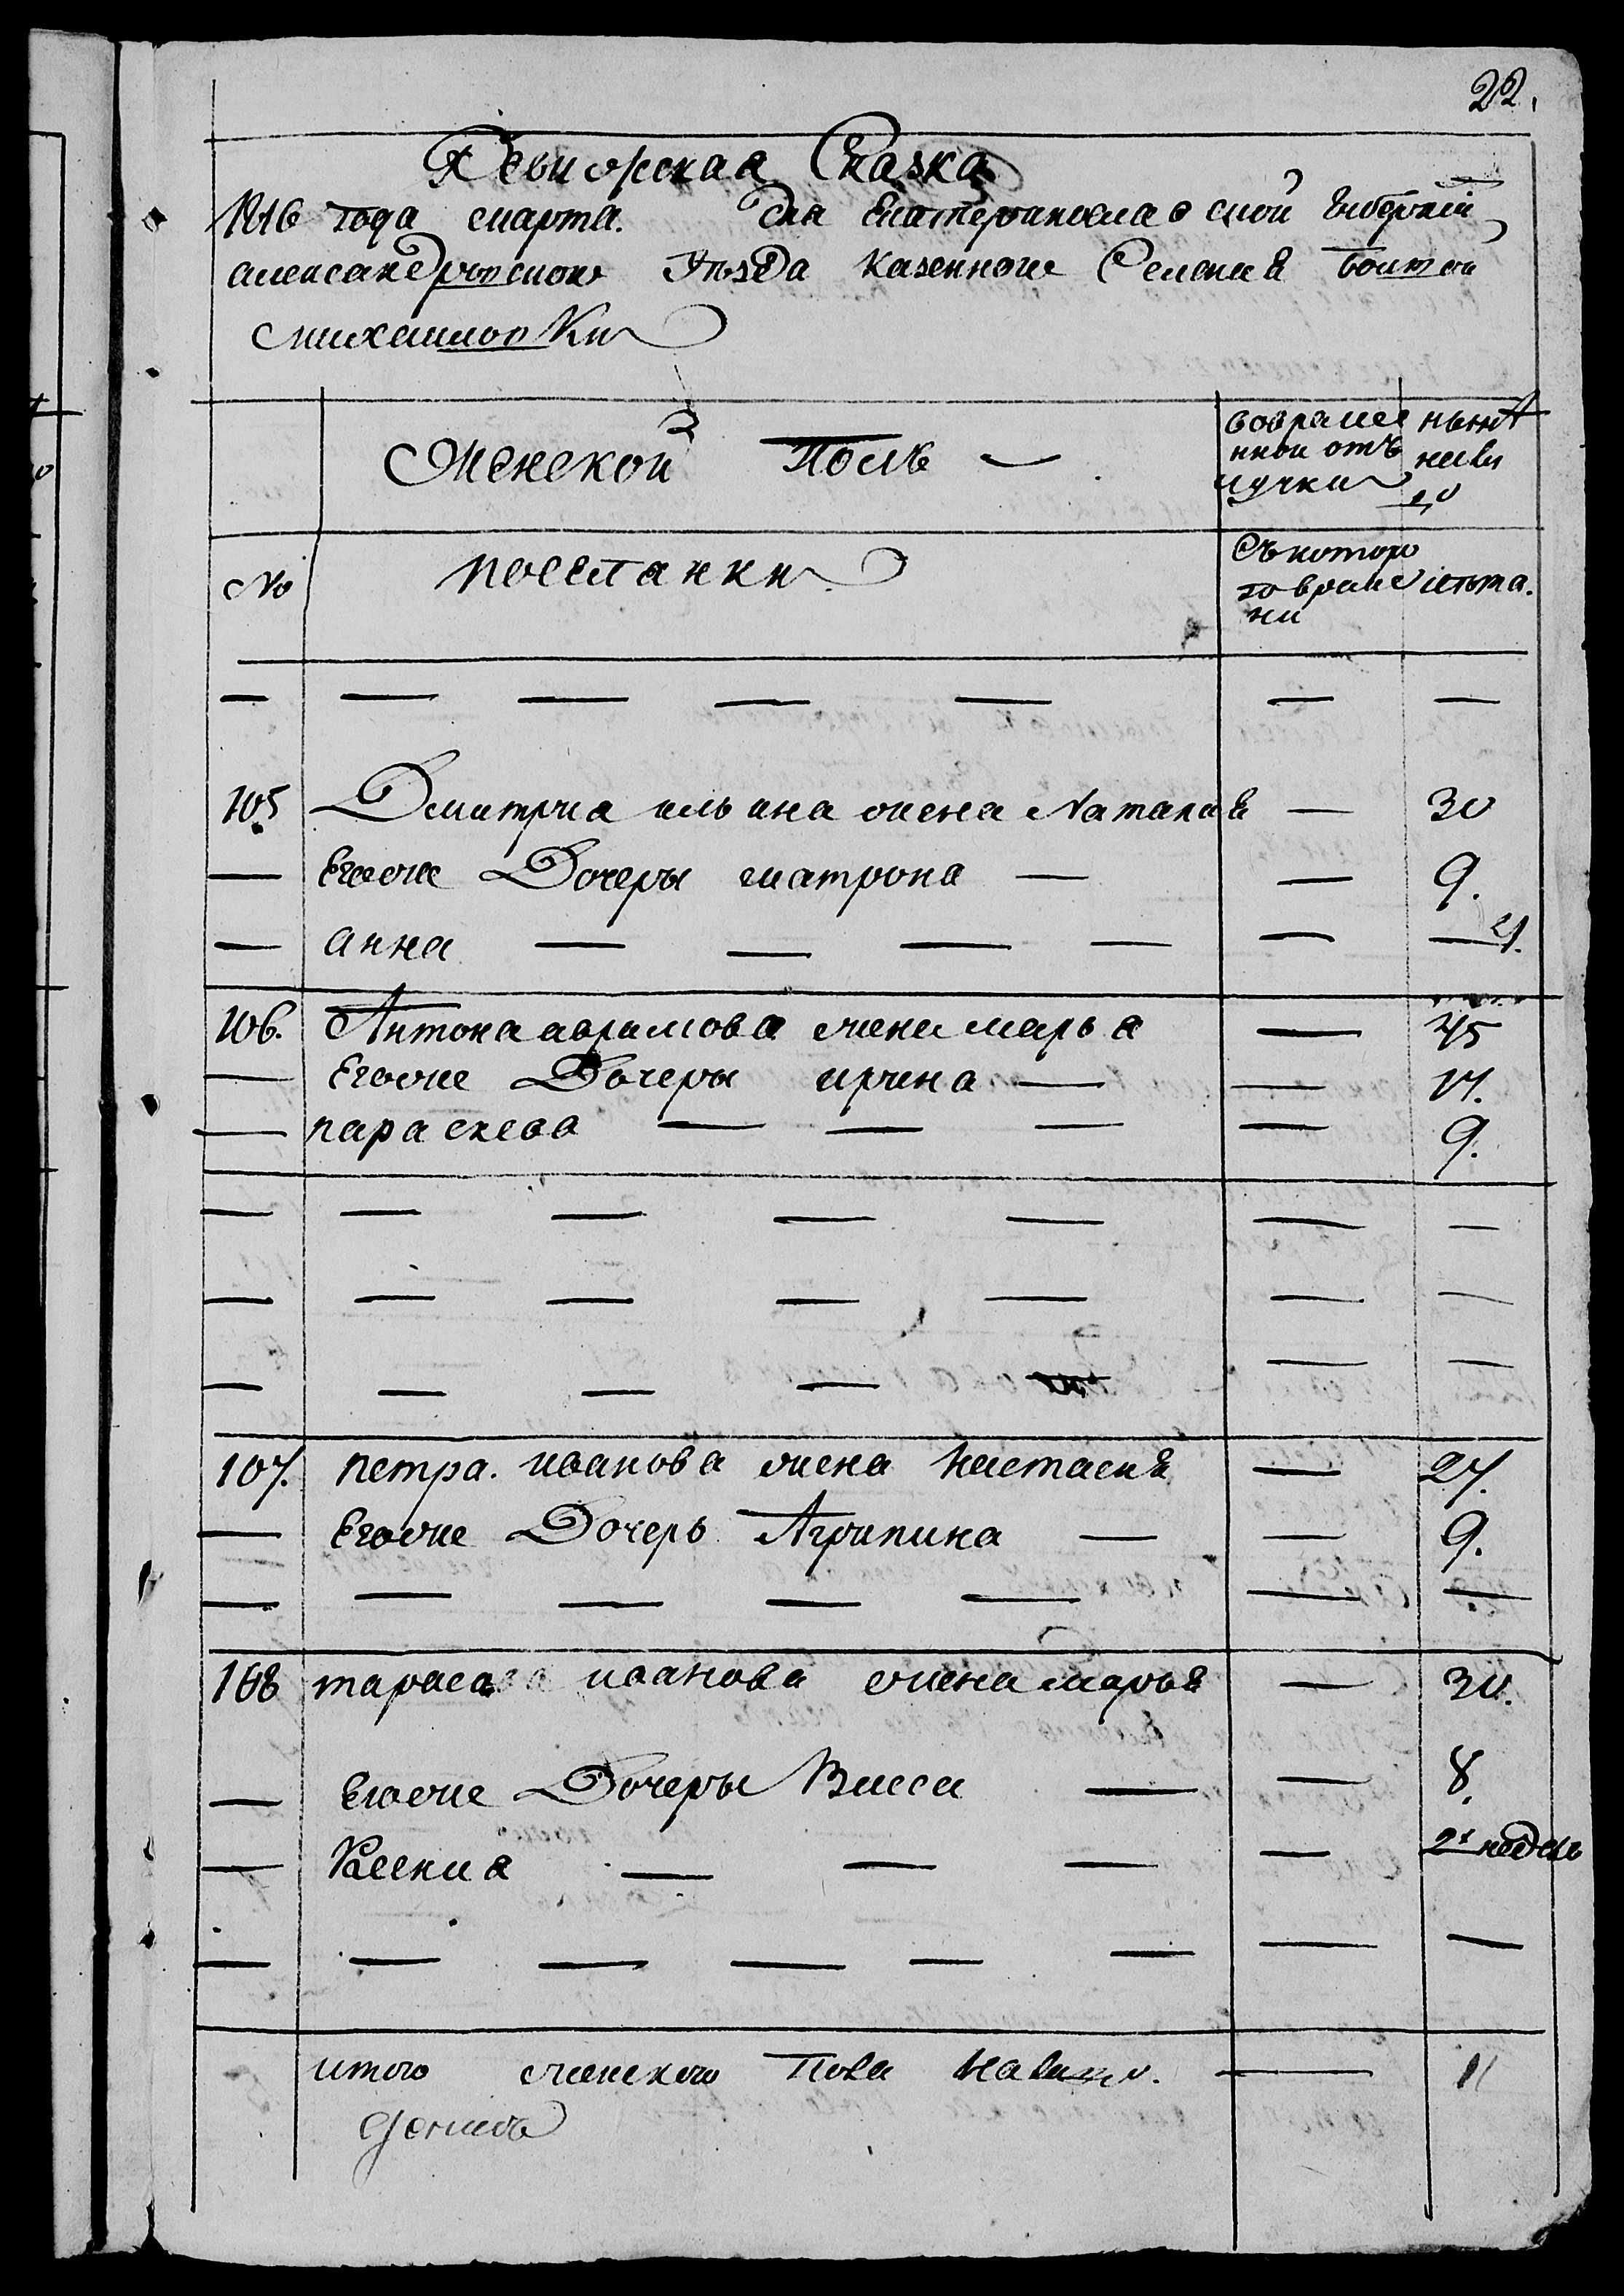 22.
Ревизская Сказка
1816 года марта. дня Екатеринославской губернии
александровского Уезда Казенного Селения больш ой
михаиловки
Женской Полъ
вовремен ной отъ лучки
ныне на ли цо
№
поселянки
Съ котораго времени
лета.
105 Дмитриа ильина жена Наталия — 30
— Егоже Дочеры матрона — — 9.
— анна — — — — — 2.
106. Антона аврамова жена марьа — 45
— Егоже Дочеры ирина — — 17.
— параскева — — — — 9.
107. петра. иванова жена настасия — 27.
— Егоже Дочерь Агрипина — — 9.
108 тараса иванова жена марья — 30.
— Егоже Дочеры Васса — — 8.
— Ксения — — — — 2 недель
итого женского Пола налицо. — 11